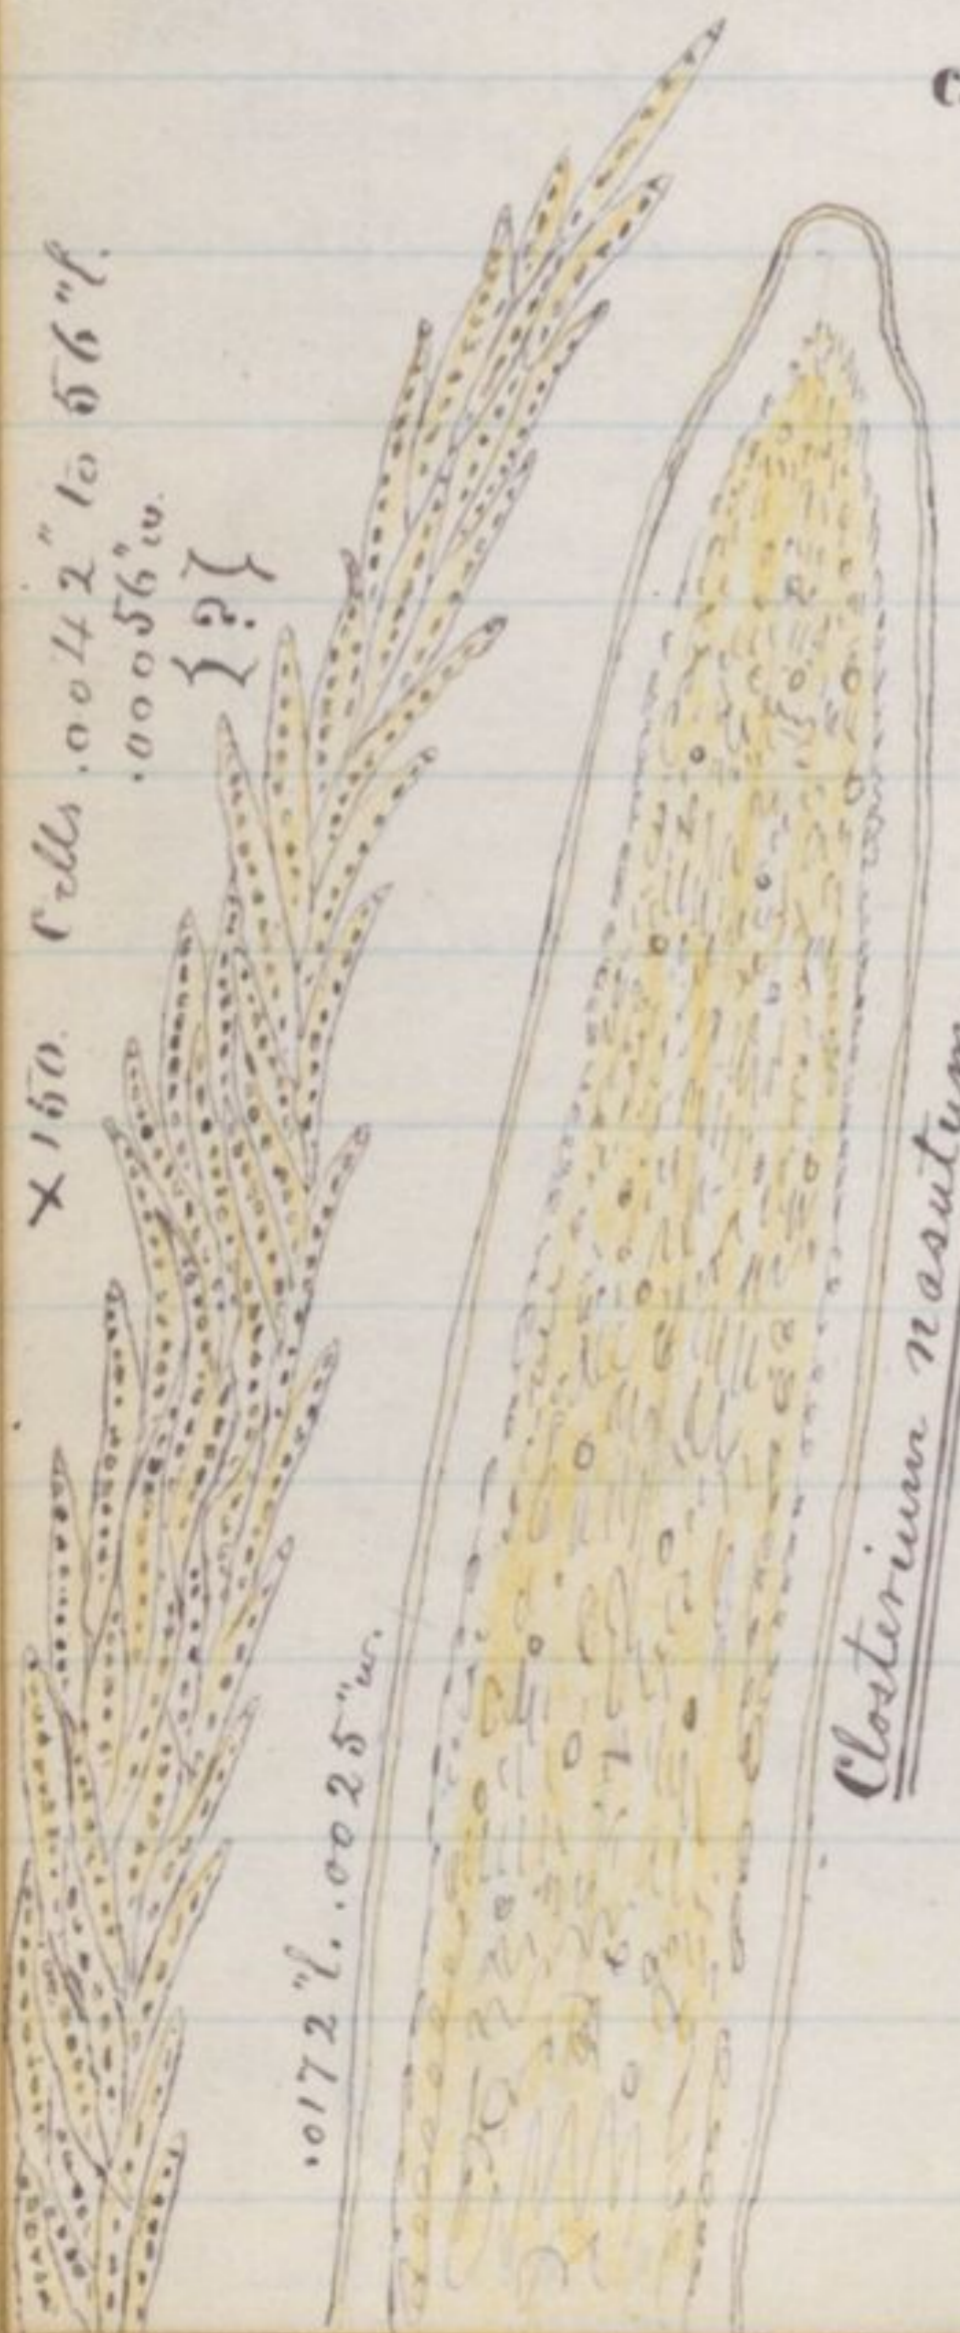 × 150. Cells .0042" to 56" l.
.00056" w.
{?}
.0172" l. .0025" w.
Closterium nasutum
?